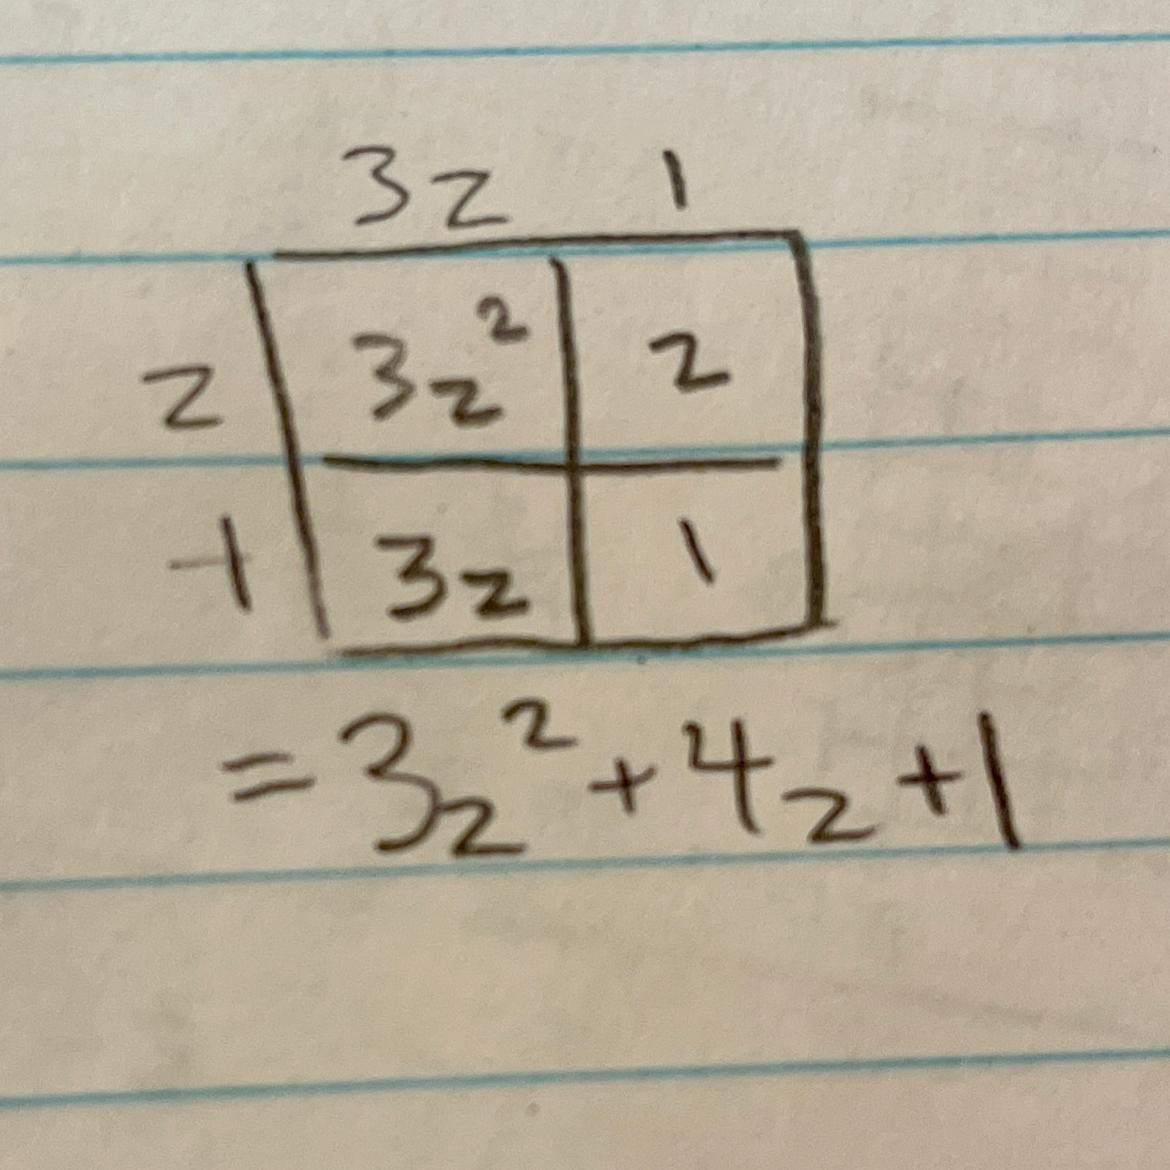 3z 1
z 3z² z
-1 3z 1
= 3z² + 4z + 1